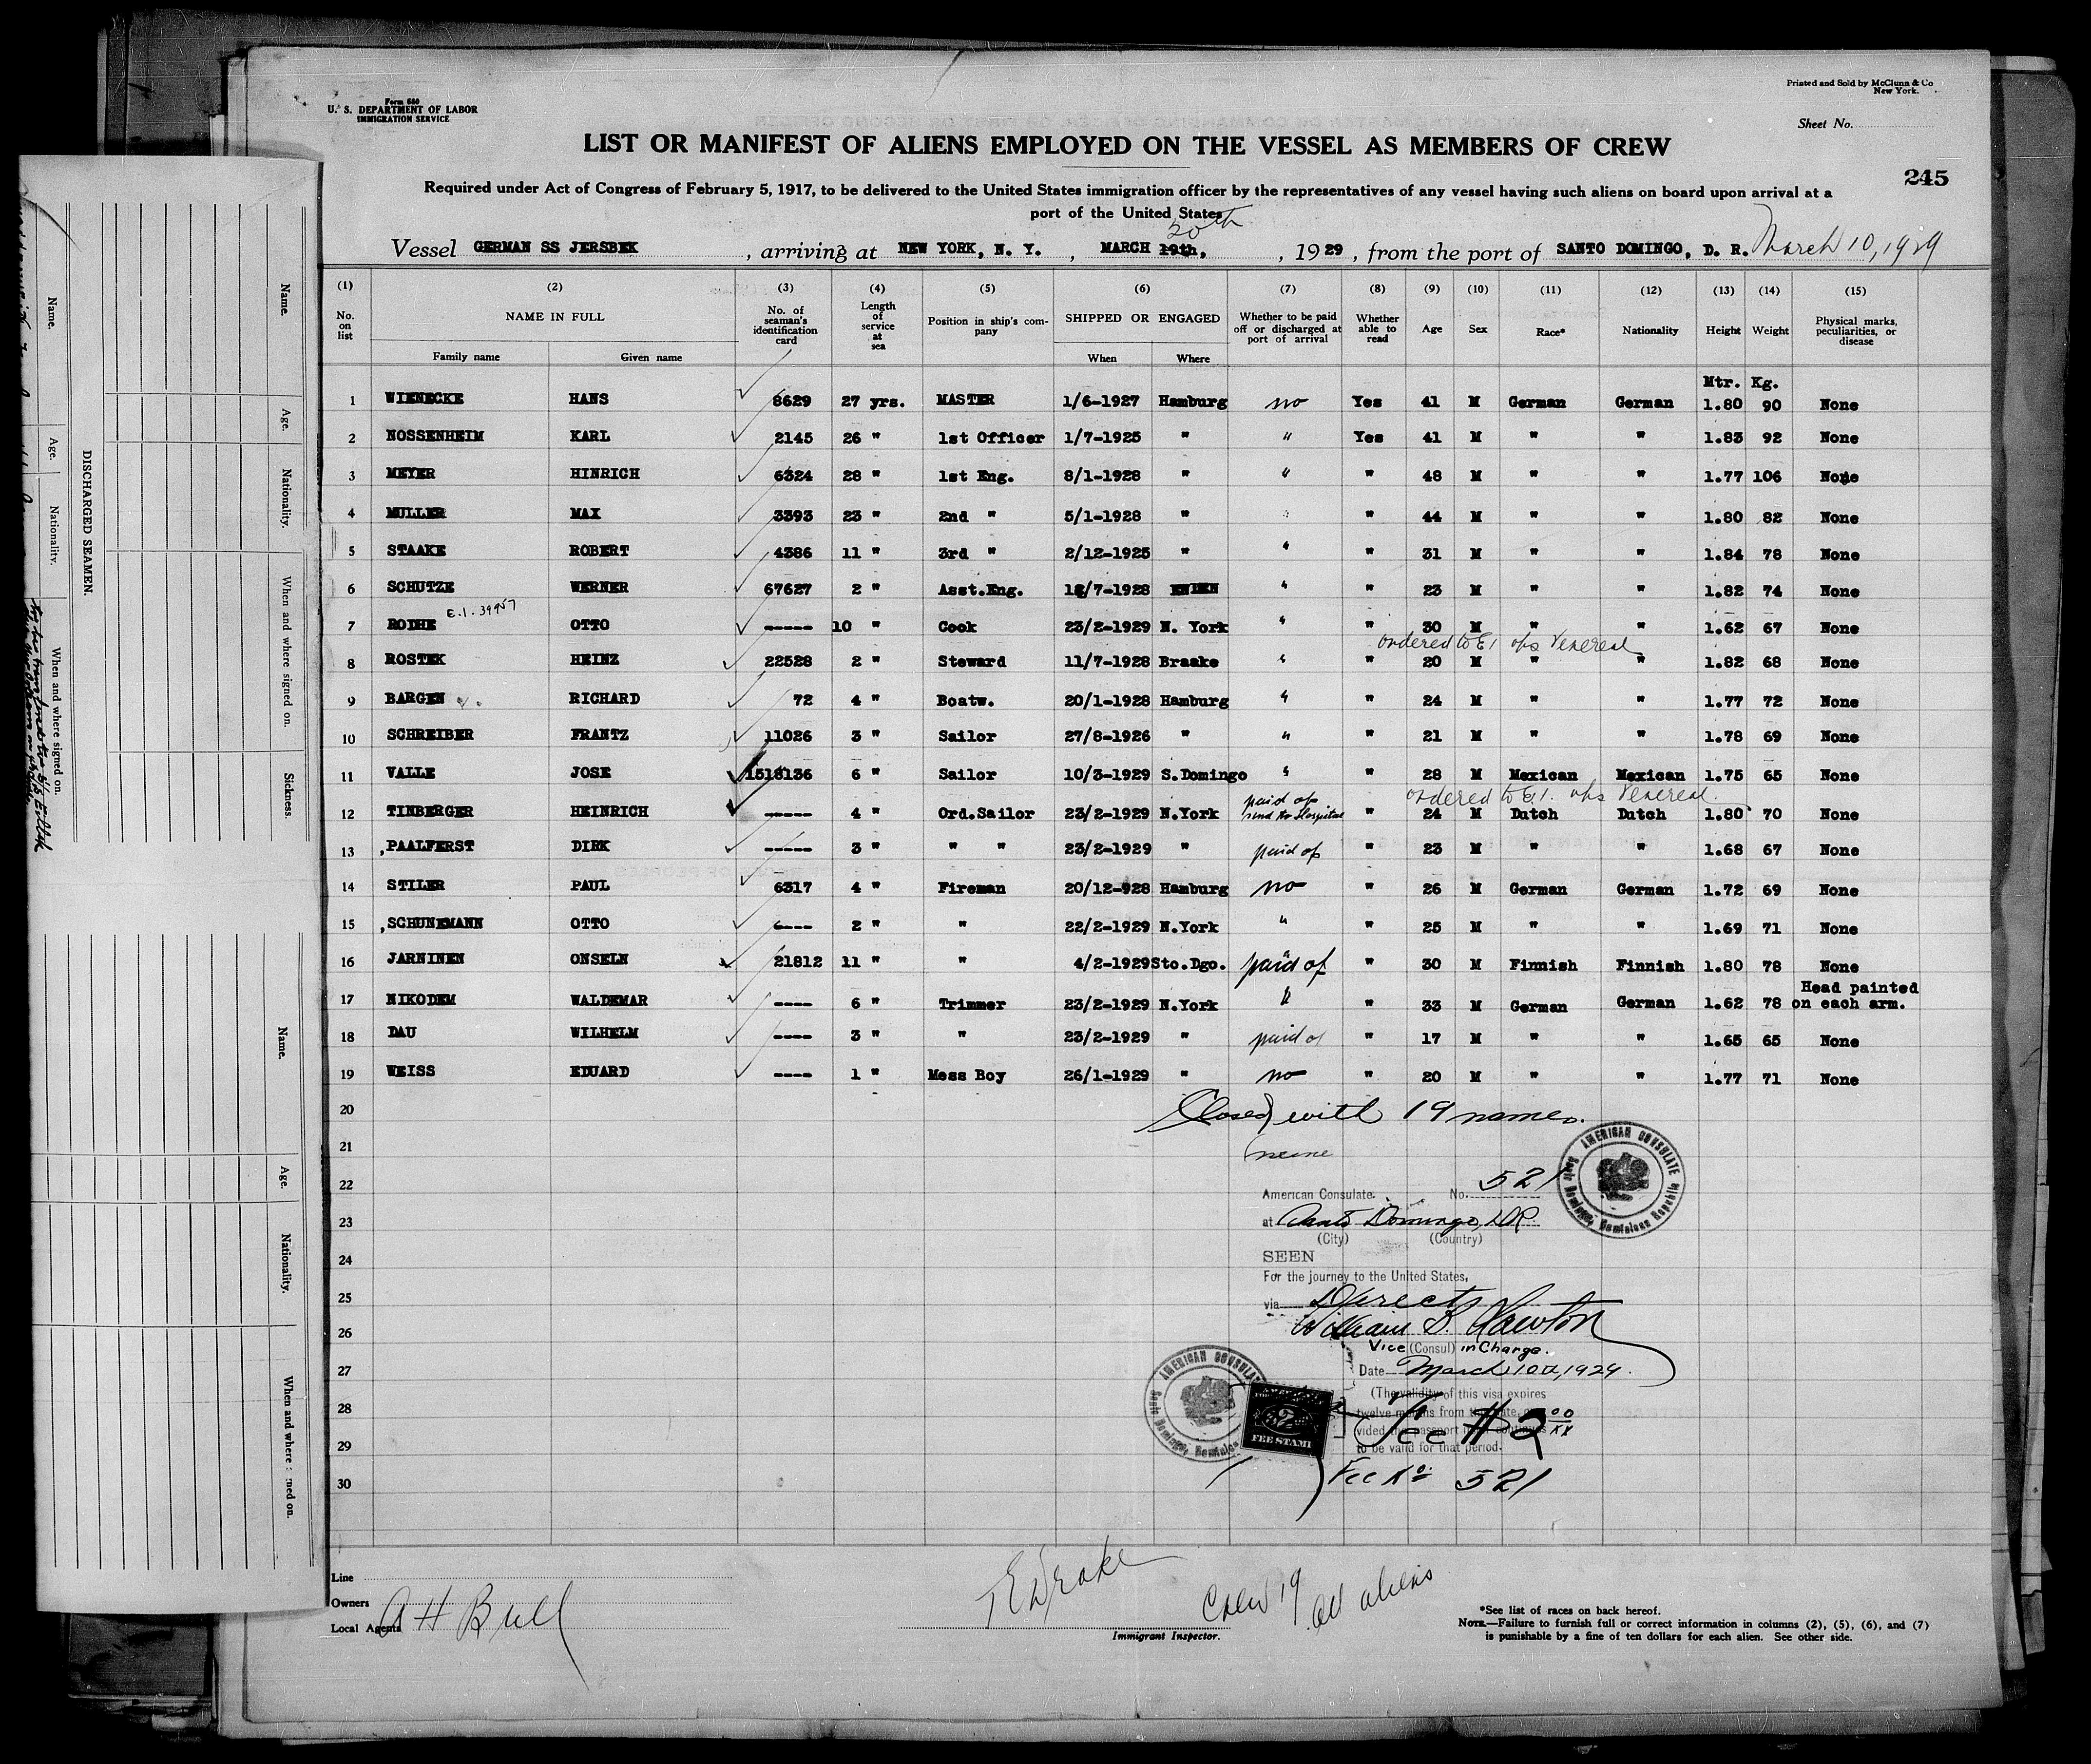 Form 680
U. S. DEPARTMENT OF LABOR
IMMIGRATION SERVICE
Printed and Sold by McClunn & Co
New York.
Sheet No.
LIST OR MANIFEST OF ALIENS EMPLOYED ON THE VESSEL AS MEMBERS OF CREW
245
Required under Act of Congress of February 5, 1917, to be delivered to the United States immigration officer by the representatives of any vessel having such aliens on board upon arrival at a
port of the United States
20th
Vessel GERMAN SS JERSBEK , arriving at NEW YORK, N. Y. , MARCH 19th, , 1929 , from the port of SANTO DOMINGO, D. R. March 10, 1929
(1) (2) (3) (4) (5) (6) (7) (8) (9) (10) (11) (12) (13) (14) (15)
No. on list NAME IN FULL Family name Given name No. of seaman's identification card Length of service at sea Position in ship's company SHIPPED OR ENGAGED When Where Whether to be paid off or discharged at port of arrival Whether able to read Age Sex Race* Nationality Height Weight Physical marks, peculiarities, or disease
Mtr. Kg.
1 WIENECKE HANS 8629 27 yrs. MASTER 1/6-1927 Hamburg no Yes 41 M German German 1.80 90 None
2 NOSSENHEIM KARL 2145 26 " 1st Officer 1/7-1925 " " Yes 41 M " " 1.83 92 None
3 MEYER HINRICH 6324 28 " 1st Eng. 8/1-1928 " " " 48 M " " 1.77 106 None
4 MULLER MAX 3393 23 " 2nd " 5/1-1928 " " " 44 M " " 1.80 82 None
5 STAAKE ROBERT 4386 11 " 3rd " 2/12-1925 " " " 31 M " " 1.84 78 None
6 SCHUTZE WERNER 67627 2 " Asst.Eng. 18/7-1928 EMDEN " " 23 M " " 1.82 74 None
E.I. 39957
7 RODHE OTTO ----- 10 " Cook 23/2-1929 N. York " " 30 M " " 1.62 67 None
ordered to E.I obs Venereal
8 ROSTEK HEINZ 22528 2 " Steward 11/7-1928 Braake " " 20 M " " 1.82 68 None
9 BARGEN RICHARD 72 4 " Boatw. 20/1-1928 Hamburg " " 24 M " " 1.77 72 None
10 SCHREIBER FRANTZ 11026 3 " Sailor 27/8-1926 " " " 21 M " " 1.78 69 None
11 VALLE JOSE 1518136 6 " Sailor 10/3-1929 S.Domingo " " 28 M Mexican Mexican 1.75 65 None
ordered to E.I. obs Venereal
12 TINBERGER HEINRICH ----- 4 " Ord.Sailor 23/2-1929 N.York paid of send to Hospital " 24 M Dutch Dutch 1.80 70 None
13 PAALFERST DIRK ----- 3 " " " 23/2-1929 " paid of " 23 M " " 1.68 67 None
14 STILER PAUL 6317 4 " Fireman 20/12-928 Hamburg no " 26 M German German 1.72 69 None
15 SCHUNEMANN OTTO ---- 2 " " 22/2-1929 N.York " " 25 M " " 1.69 71 None
16 JARNINEN ONSELN 21812 11 " " 4/2-1929 Sto.Dgo. paid of " 30 M Finnish Finnish 1.80 78 None
17 NIKODEM WALDEMAR ---- 6 " Trimmer 23/2-1929 N.York " " 33 M German German 1.62 78 Head painted on each arm.
18 DAU WILHELM ---- 3 " " 23/2-1929 " paid of " 17 M " " 1.65 65 None
19 WEISS EDUARD ---- 1 " Mess Boy 26/1-1929 " no " 20 M " " 1.77 71 None
20 Closed with 19 names.
21
22
23
24
25
26
27
28
29
30
American Consulate. No. 521
at Santo Domingo, D.R.
(City) (Country)
SEEN
For the journey to the United States,
via Direct
William B. Lawton
Vice (Consul) in Charge.
Date March 10th, 1929.
(The validity of this visa expires
twelve months from
to be valid for that period.
Fee # 2 00/xx
Fee No 521
AMERICAN CONSULATE
Santo Domingo, Dominican Republic
AMERICAN CONSULATE
Santo Domingo, Dominican
FEE STAMP
Line
Owners
Local Agents A H Bull
Drake
Immigrant Inspector.
Crew 19 all aliens
*See list of races on back hereof.
NOTE.—Failure to furnish full or correct information in columns (2), (5), (6), and (7)
is punishable by a fine of ten dollars for each alien. See other side.
DISCHARGED SEAMEN.
Name. Age. Nationality. When and where signed on. Sickness.
Name. Age. Nationality. When and where signed on.
Name. Age. Nationality. When and where signed on.